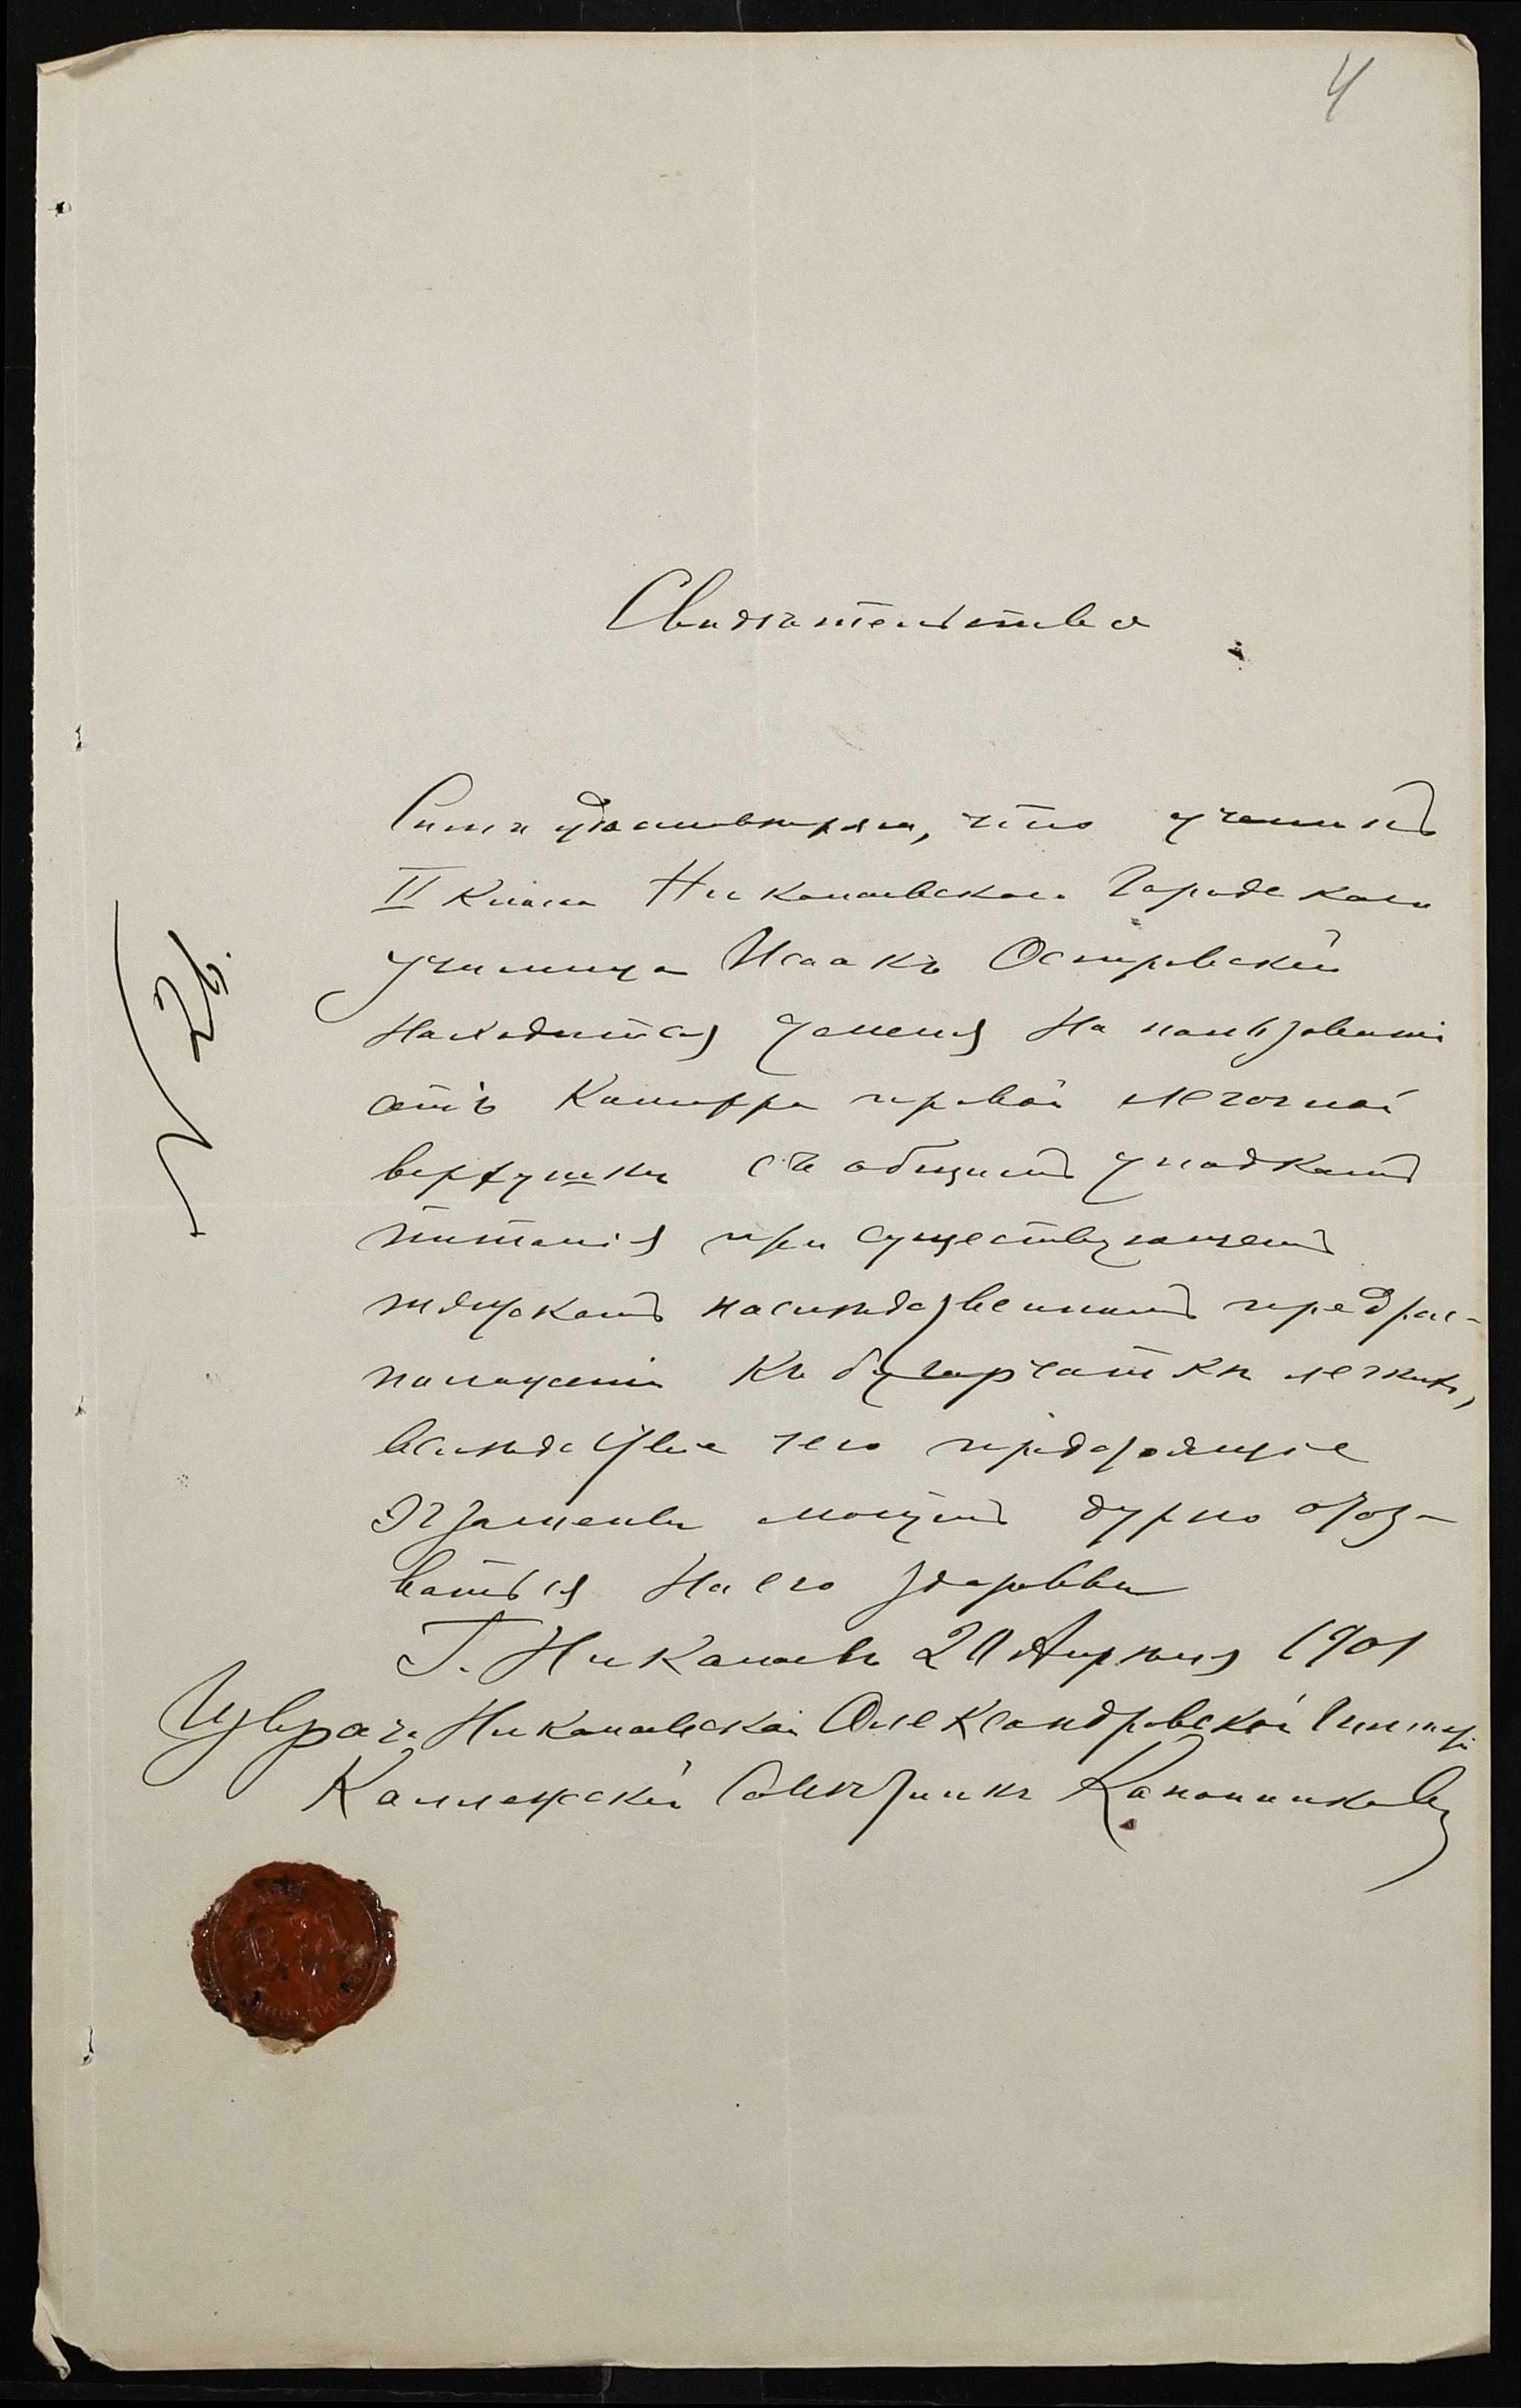 4
Свидѣтельство
Симъ удостовѣряю, что ученикъ
II класса Николаевскаго Городскаго
училища Исаакъ Островскій
находится у меня на пользованіи
отъ катарра правой легочной
верхушки съ общимъ упадкомъ
питанія при существующемъ
тяжкомъ наслѣдственномъ предрас-
положеніи къ бугорчаткѣ легкихъ,
вслѣдствіе чего предстоящіе
экзамены могутъ дурно отоз-
ваться на его здоровьи
Г. Николаевъ 20 Апрѣля 1901
врачъ Николаевской Александровской Гимназіи
Коллежскій Совѣтникъ Канонниковъ